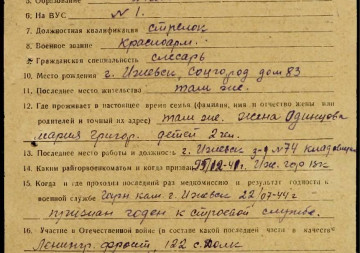 5. Образование
6. На ВУС № 1.
7. Должностная квалификация стрелок
8. Военное звание Красноарм.
9. Гражданская специальность слесарь
10. Место рождения г. Ижевск, Соцгород дом 83
11. Последнее место жительства там же.
12. Где проживает в настоящее время семья (фамилия, имя и отчество жены или
родителей и точный их адрес) там же. жена Одинцова
Мария Григор. детей 2 чел.
13. Последнее место работы и должность г. Ижевск з-д №74 кладовщик
14. Каким райгорвоенкоматом и когда призван
15. Когда и где проходил последний раз медкомиссию и результат годности к
военной службе Горв ком г. Ижевск 22/07-44 г
признан годен к строевой службе.
16. Участие в Отечественной войне (в составе какой последней части в качестве
Ленингр. фронт, 122 с. Полк